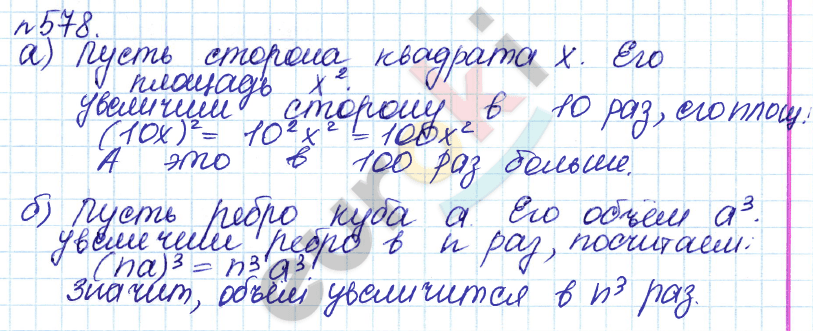 №578.
а) Пусть сторона квадрата x. Его
площадь x².
увеличим сторону в 10 раз, его площ.:
(10x)² = 10²x² = 100x²
А это в 100 раз больше.
б) Пусть ребро куба a. Его объём a³.
увеличим ребро в n раз, посчитаем:
(na)³ = n³a³
Значит, объём увеличится в n³ раз.
euroki